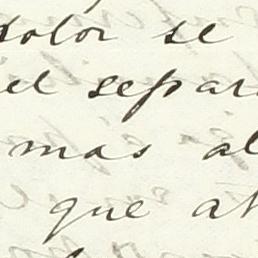 dolor se
el separ
mas al
que at